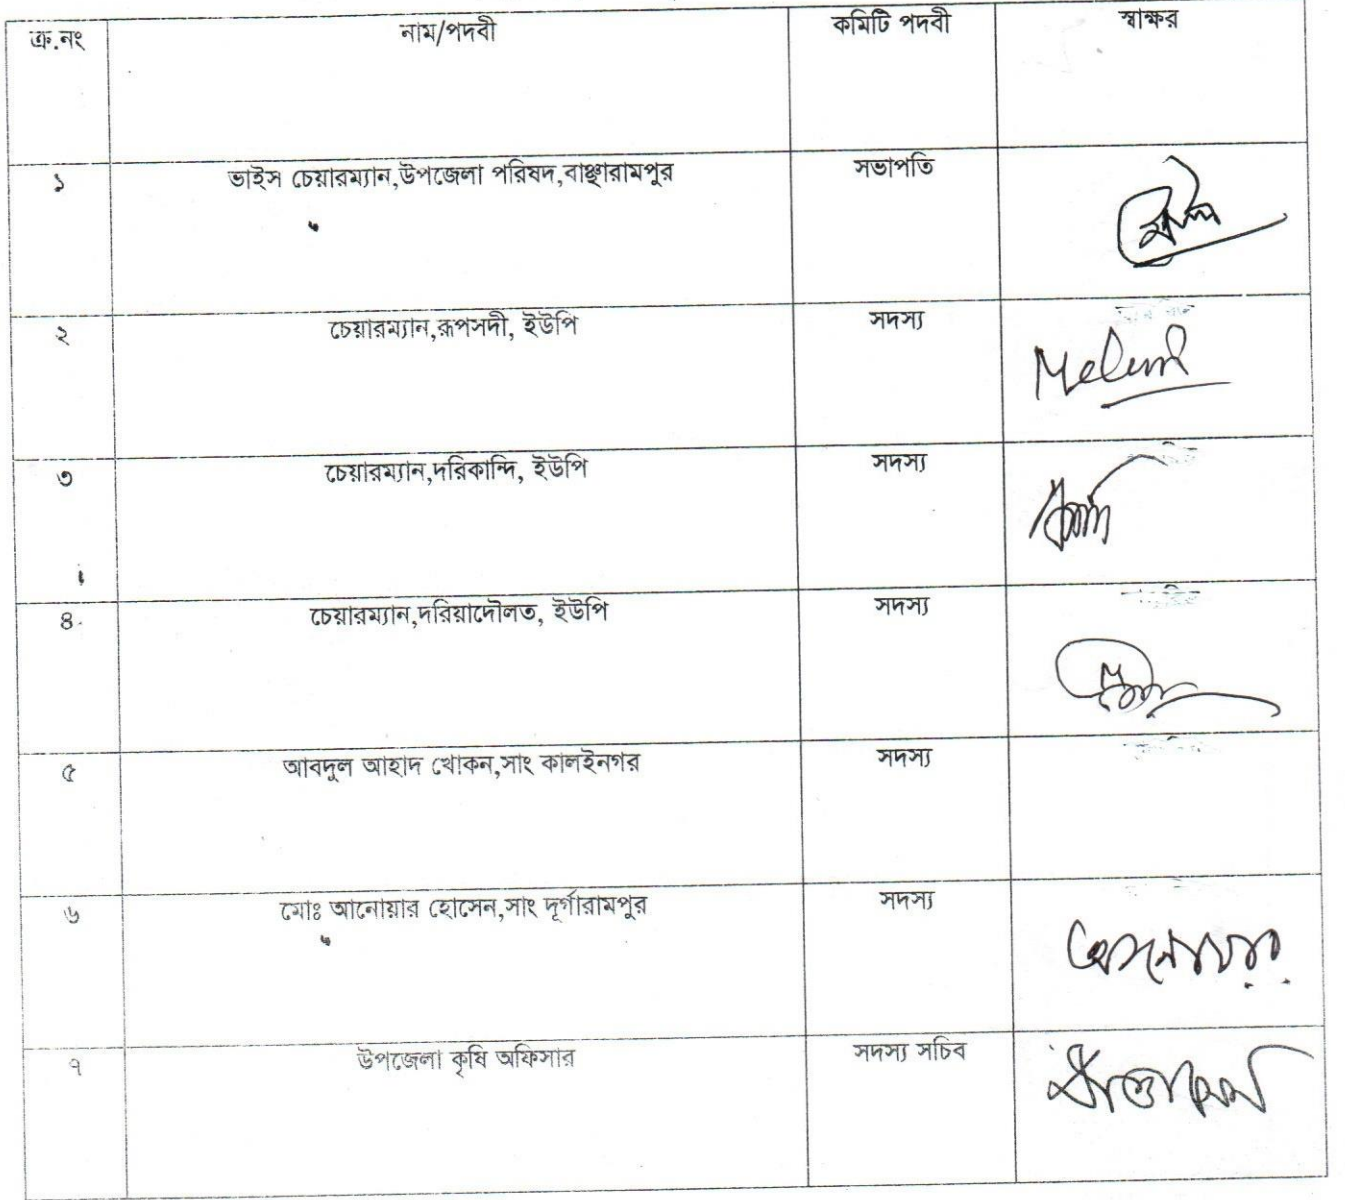 ক্র.নং নাম/পদবী কমিটি পদবী স্বাক্ষর
১ ভাইস চেয়ারম্যান,উপজেলা পরিষদ,বাঞ্ছারামপুর সভাপতি
২ চেয়ারম্যান,রূপসদী, ইউপি সদস্য
৩ চেয়ারম্যান,দরিকান্দি, ইউপি সদস্য
৪ চেয়ারম্যান,দরিয়াদৌলত, ইউপি সদস্য
৫ আবদুল আহাদ খোকন,সাং কালইনগর সদস্য
৬ মোঃ আনোয়ার হোসেন,সাং দূর্গারামপুর সদস্য
আনোয়ার
৭ উপজেলা কৃষি অফিসার সদস্য সচিব